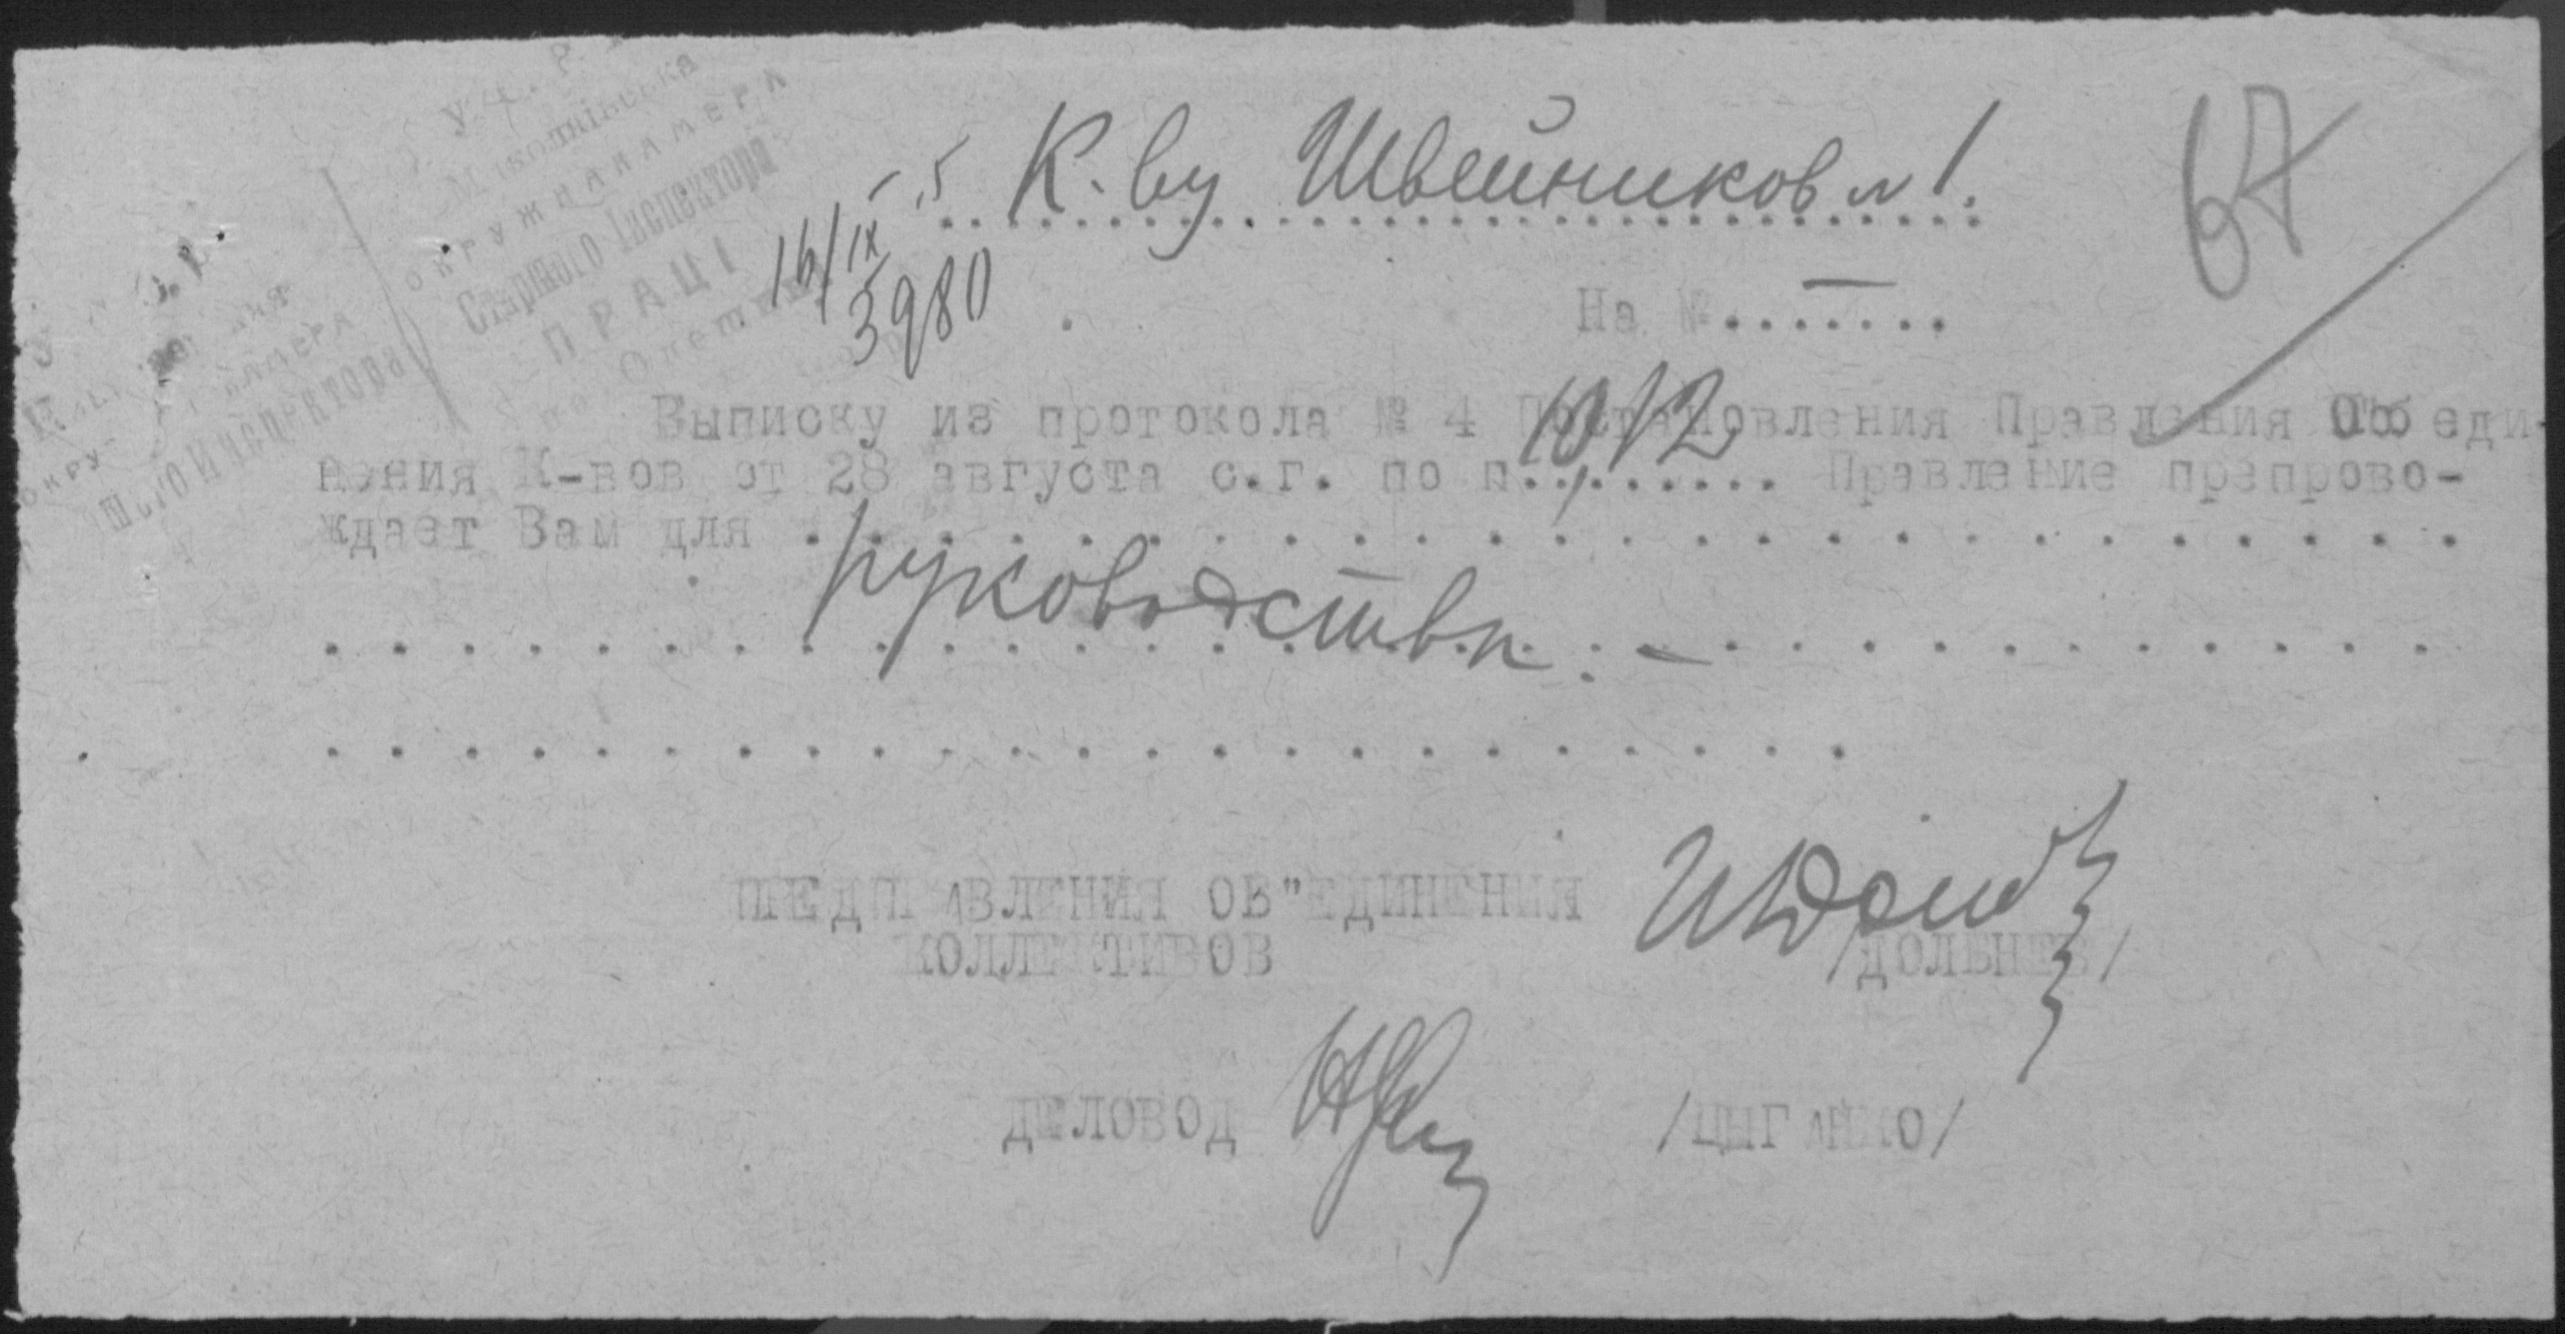 67
У.С.Р.Р.
Миколаївська
ОКРУЖНА КАМЕРА
Старшого Інспектора
ПРАЦІ
КАМЕРА
Инспектора
К-ву Швейников № 1.
16/IX - 5
3980
На №........
Выписку из протокола № 4 Постановления Правления Об"еди-
нения К-вов от 28 августа с.г. по п. 10, 12 Правление препрово-
ждает Вам для . . . . . . . . . . . . . . . . . . . . . . . .
руководства. —
ПРЕДПРАВЛЕНИЯ ОБ"ЕДИНЕНИЯ
КОЛЛЕКТИВОВ
/ДОЛЬНЕВ/
ДЕЛОВОД /ЦЫГАНКО/